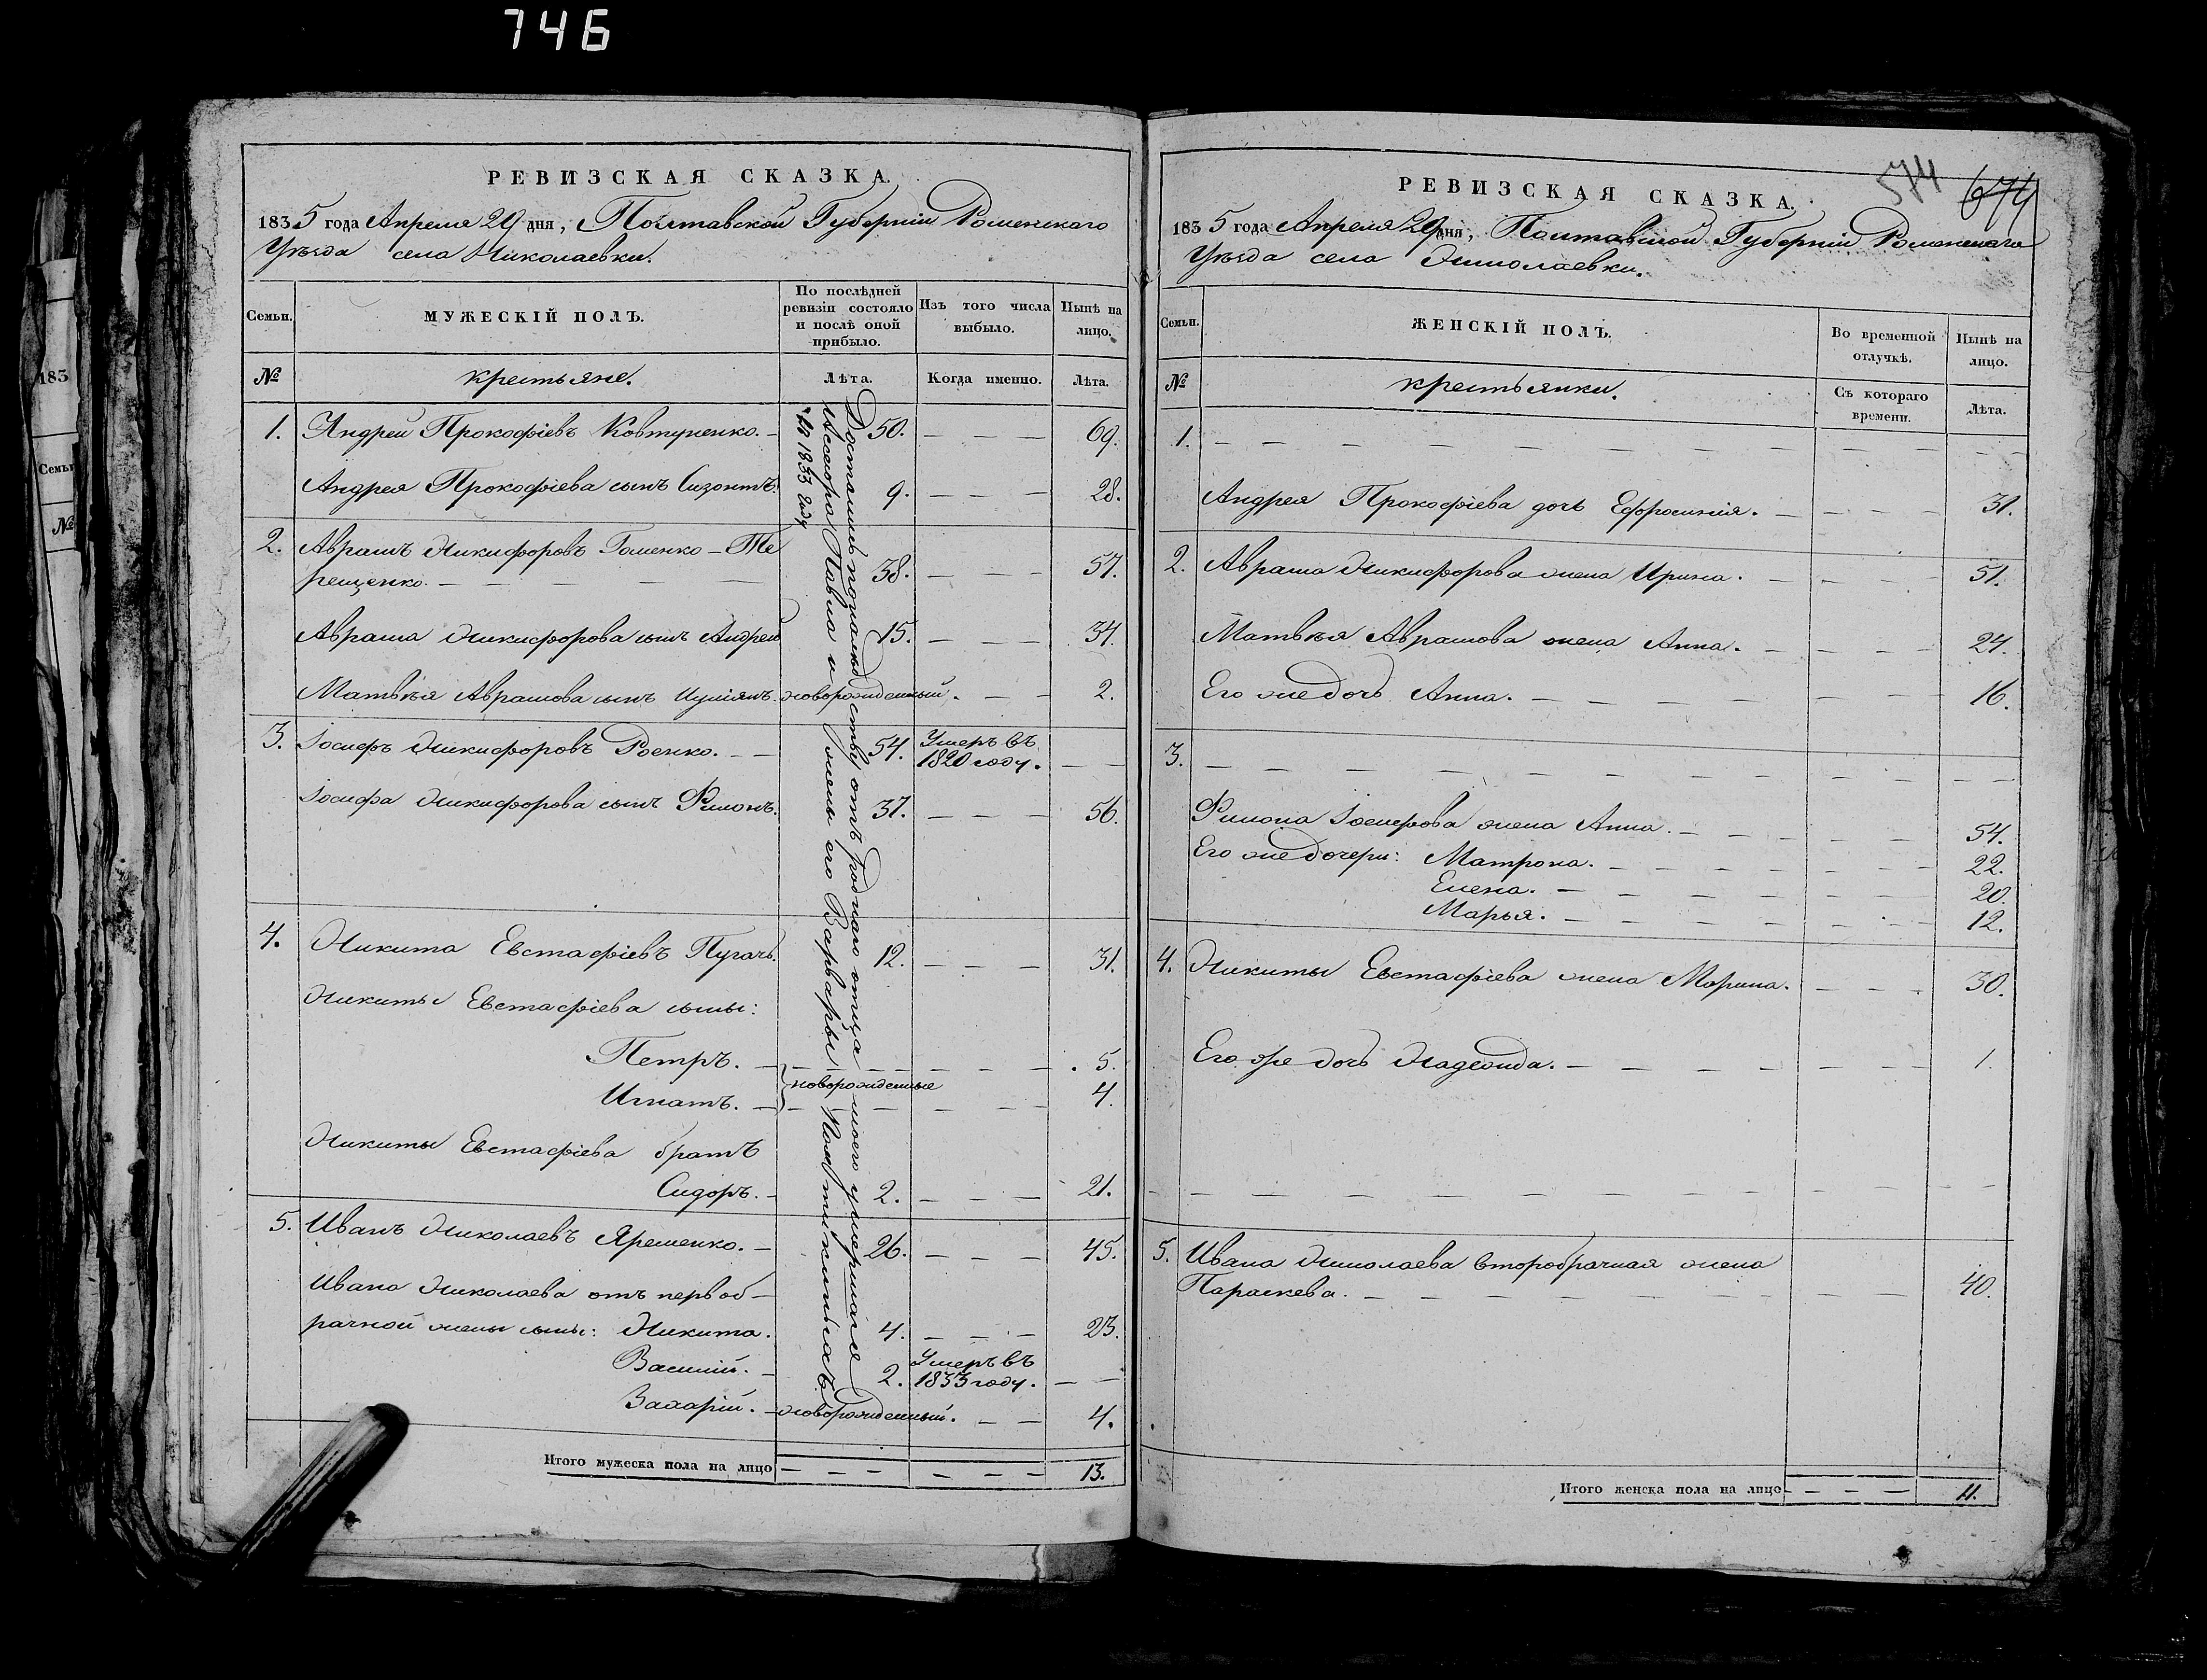 746
РЕВИЗСКАЯ СКАЗКА.
1835 года Апреля 29 дня, Полтавской Губерніи Роменскаго
Уѣзда села Николаевки.
Семьи.
МУЖЕСКІЙ ПОЛЪ.
По послѣдней ревизіи состояло и послѣ оной прибыло.
Изъ того числа выбыло.
Нынѣ на лицо.
№
крестьяне.
Лѣта.
Когда именно.
Лѣта.
1. Андрей Прокофіевъ Ковтуненко. 50. 69.
Андрея Прокофіева сынъ Сизонтъ. 9. 28.
2. Аврамъ Никифоровъ Гоменко-Те
рещенко. 38. 57.
Аврама Никифорова сынъ Андрей 15. 34.
Матвѣя Аврамова сынъ новорожденный. 2.
3. Іосифъ Никифоровъ Роенко. 54. Умеръ въ
1820 году.
Іосифа Никифорова сынъ Филонъ. 37. 56.
4. Никита Евстафіевъ Пугачъ. 12. 31.
Никиты Евстафіева сыны:
Петръ. 5.
новорожденные
Игнатъ. 4.
Никиты Евстафіева братъ
Сидоръ. 2. 21.
5. Иванъ Николаевъ Яременко. 26. 45.
Ивана Николаева отъ первоб-
рачной жены сыны: Никита. 4. 23.
Василій. 2. Умеръ въ
1833 году.
Захарій. новорожденный. 4.
Достались по наслѣдству отъ роднаго отца моего умершаго
маіора Павла и жены его Варвары
въ 1833 году
Итого мужеска пола на лицо 13.
574 674
РЕВИЗСКАЯ СКАЗКА.
1835 года Апреля 29 дня, Полтавской Губерніи Роменскаго
Уѣзда села Николаевки.
Семьи.
ЖЕНСКІЙ ПОЛЪ.
Во временной отлучкѣ.
Нынѣ на лицо.
№
крестьянки.
Съ котораго времени.
Лѣта.
1.
Андрея Прокофіева дочь Ефросинія. 31.
2. Аврама Никифорова жена Ирина. 51.
Матвѣя Аврамова жена Анна. 24.
Его же дочь Анна. 16.
3.
Филона Іосифова жена Анна. 54.
Его же дочери: Матрона. 22.
Елена. 20.
Марья. 12.
4. Никиты Евстафіева жена Марина. 30.
Его же дочь Надежда. 1.
5. Ивана Николаева второбрачная жена
Параскева. 40.
Итого женска пола на лицо 11.
183
Семьи
№